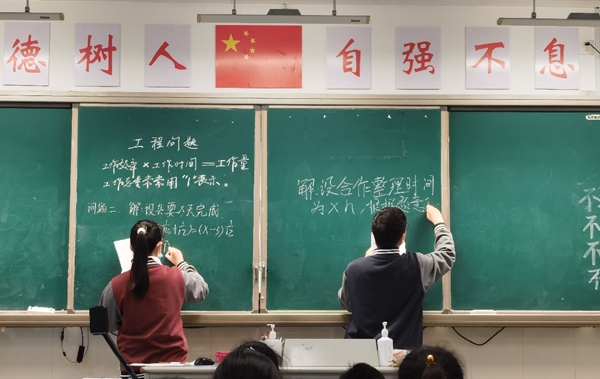 德树人 自强不息
工程问题
工作效率×工作时间=工作量
工作总量常常用"1"表示。
问题二 解:设共要x天完成
解:设合作整理时间
为x h,根据题意
不
不
不